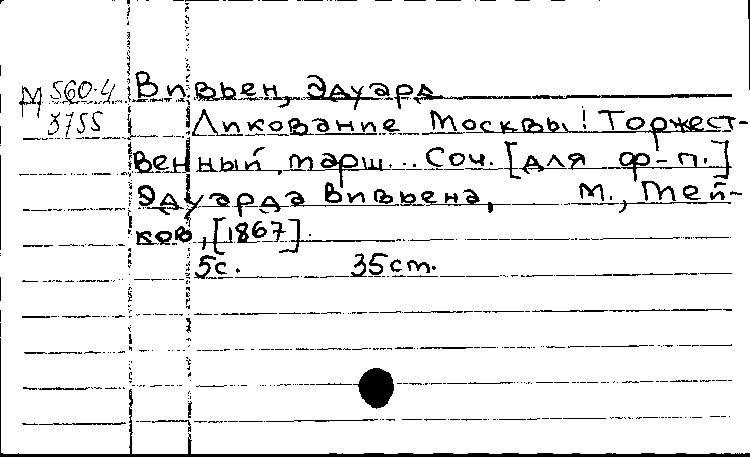 М 560.4 Вивьен, Эдуард
3755 Ликование Москвы! Торжест-
венный марш... Соч. [для ф-п.]
Эдуарда Вивьена, М., Мей-
ков, [1867].
5с. 35cm.